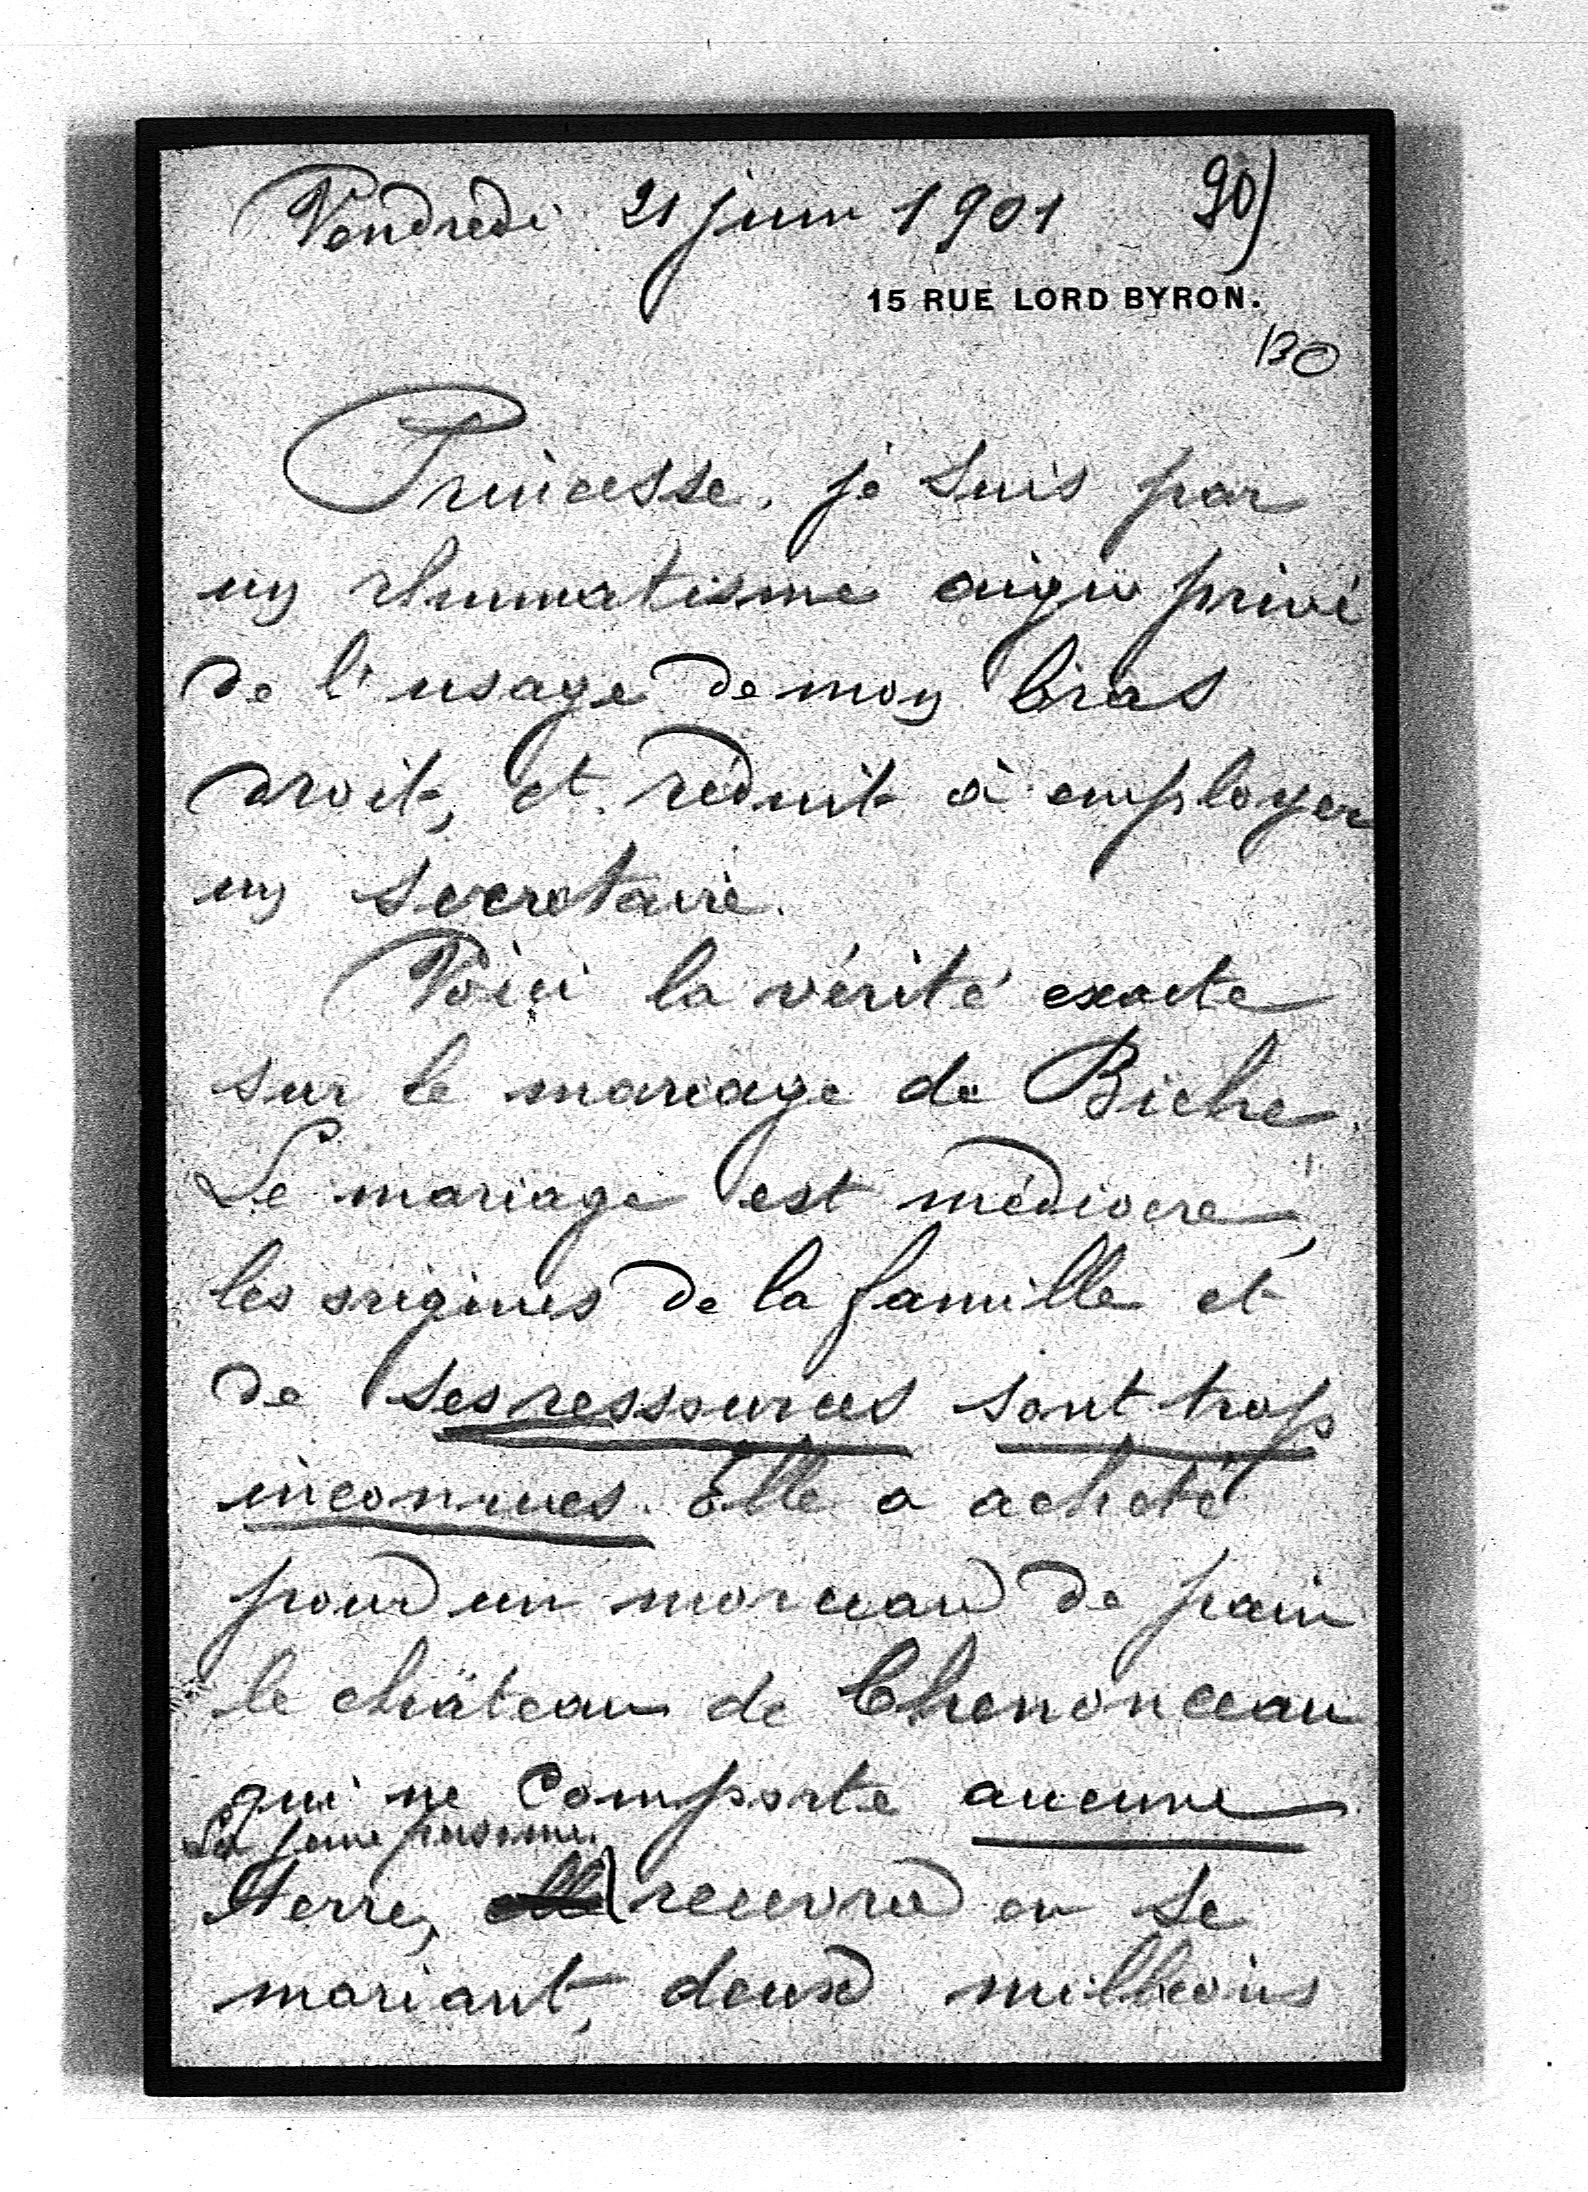 Vendredi 21 juin 1901 90)
15 RUE LORD BYRON.
130
Princesse, je suis par
un rhumatisme aigu privé
de l'usage de mon bras
droit, et réduit à employer
un secretaire.
Voici la vérité exacte
sur le mariage de Biche.
Le mariage est médiocre,
les origines de la famille et
de ses ressources sont trop
inconnues. Elle a acheté
pour un morceau de pain
le château de Chenonceau
qui ne comporte aucune
La jeune personne
terre, elle recevra en se
mariant, deux millions